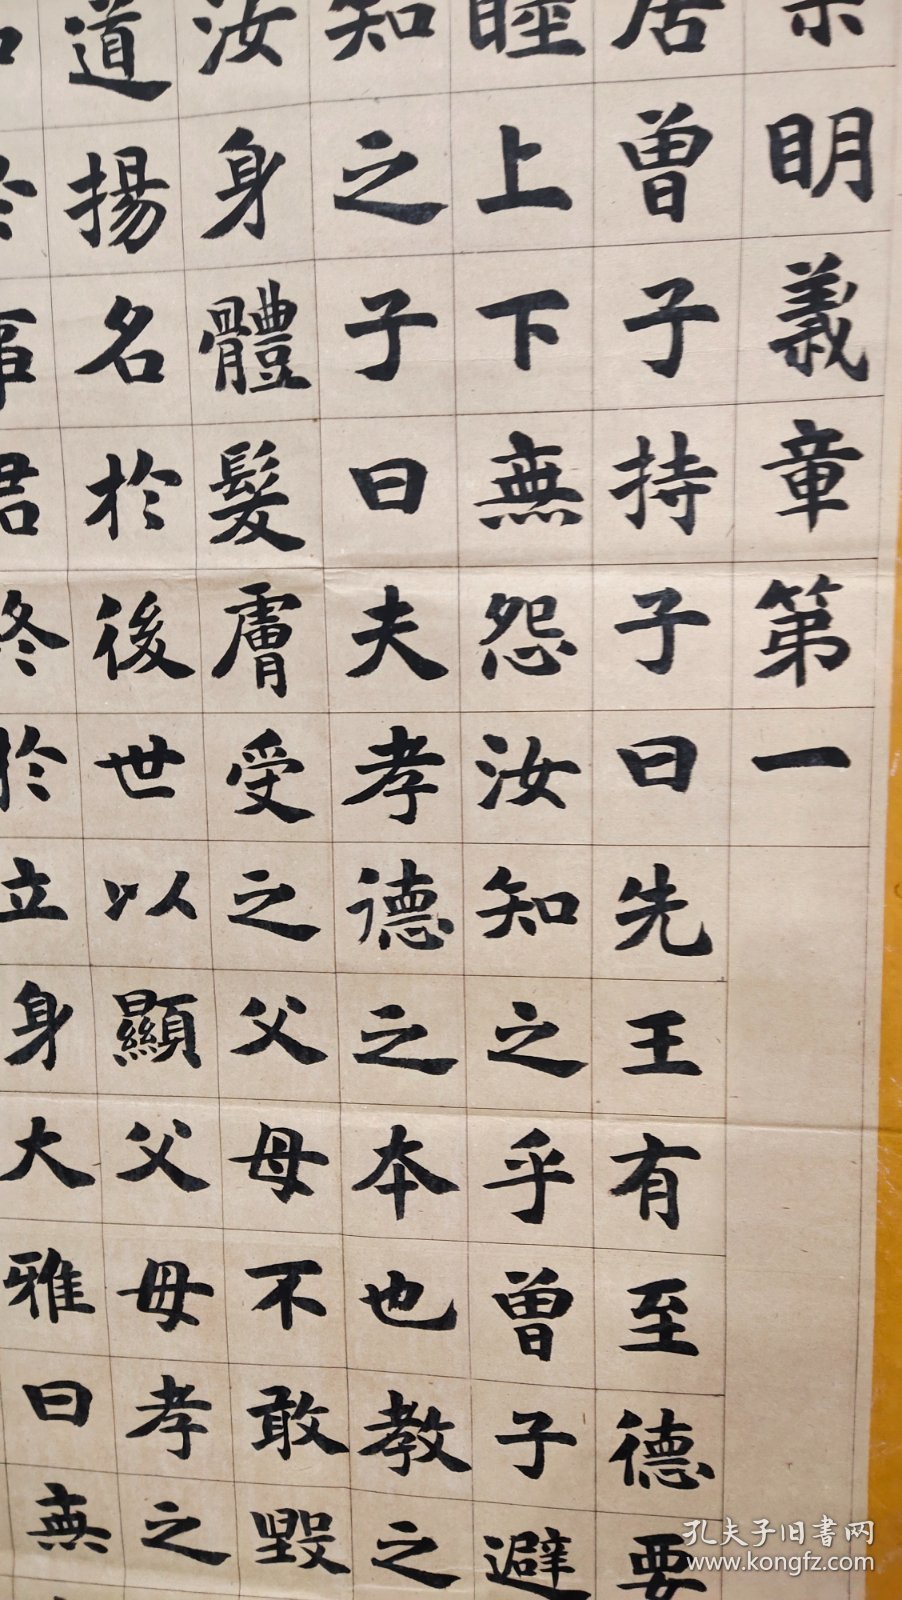 明義章第一
居曾子持子曰先王有至德要
睦上下無怨汝知之乎曾子避
知之子曰夫孝德之本也教之
汝身體髮膚受之父母不敢毀
道揚名於後世以顯父母孝之
於事君終於立身大雅曰無
孔夫子旧書网
www.kongfz.com